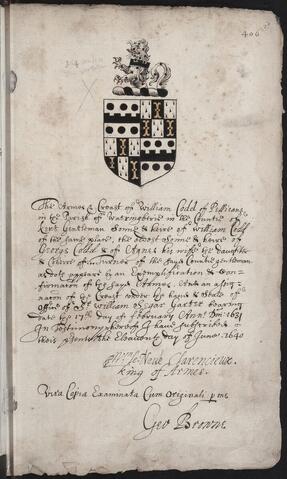 406
The Armes & Creast of William Codd of Pellicans
in the Parish of Watringberie in the Countie of
Kent Gentleman Sonne & heire of William Codd
of the same place, the eldest Sonne & heire of
George Codd & of Agnes his wife the daughter
& Coheire of Turner of the sayd Countie gentleman
as doth appeare by an Exemplification & Con-
firmation of the sayd Armes. And an assig-
nation of the Creast under the hand & Seale of
Office of Sr William Segar Garter bearing
date the 17th day of february Anno Dni 1631
In Testimony whereof I have subscribed
this present the Eleaventh day of June 1640
Wm Le Neve Clarencieux
King of Armes.
Vera Copia Examinata Cum Originali p me
Geo Browne